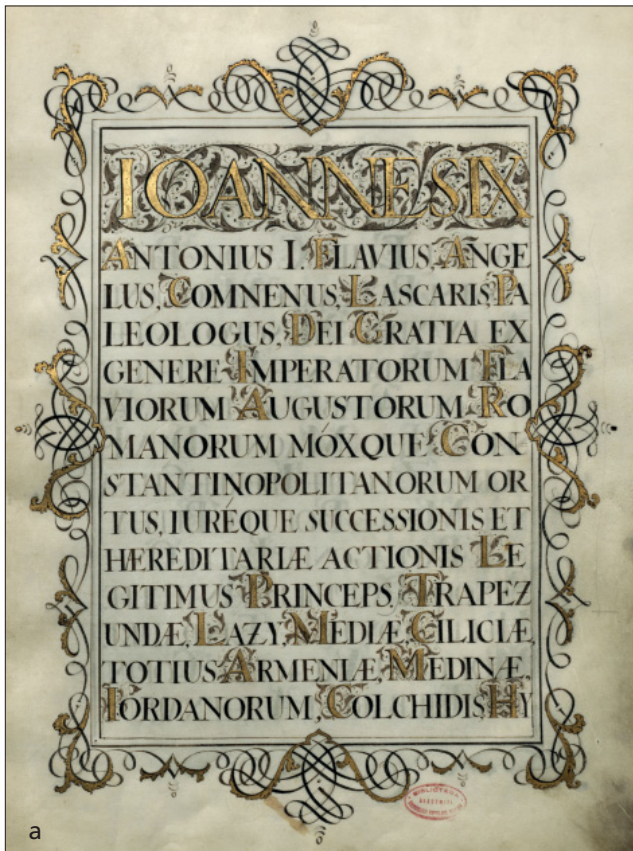 IOANNES IX
ANTONIUS I. FLAVIUS, ANGE
LUS, COMNENUS, LASCARIS, PA
LEOLOGUS, DEI GRATIA EX
GENERE IMPERATORUM FLA
VIORUM AUGUSTORUM RO
MANORUM MÓXQUE CON
STANTINOPOLITANORUM OR
TUS, IURÉQUE SUCCESSIONIS ET
HÆREDITARIÆ ACTIONIS LE
GITIMUS PRINCEPS, TRAPEZ
UNDÆ, LAZY, MEDIÆ, CILICIÆ,
TOTIUS ARMENIÆ, MEDINÆ,
IORDANORUM, COLCHIDIS, HY
BIBLIOTECA
a